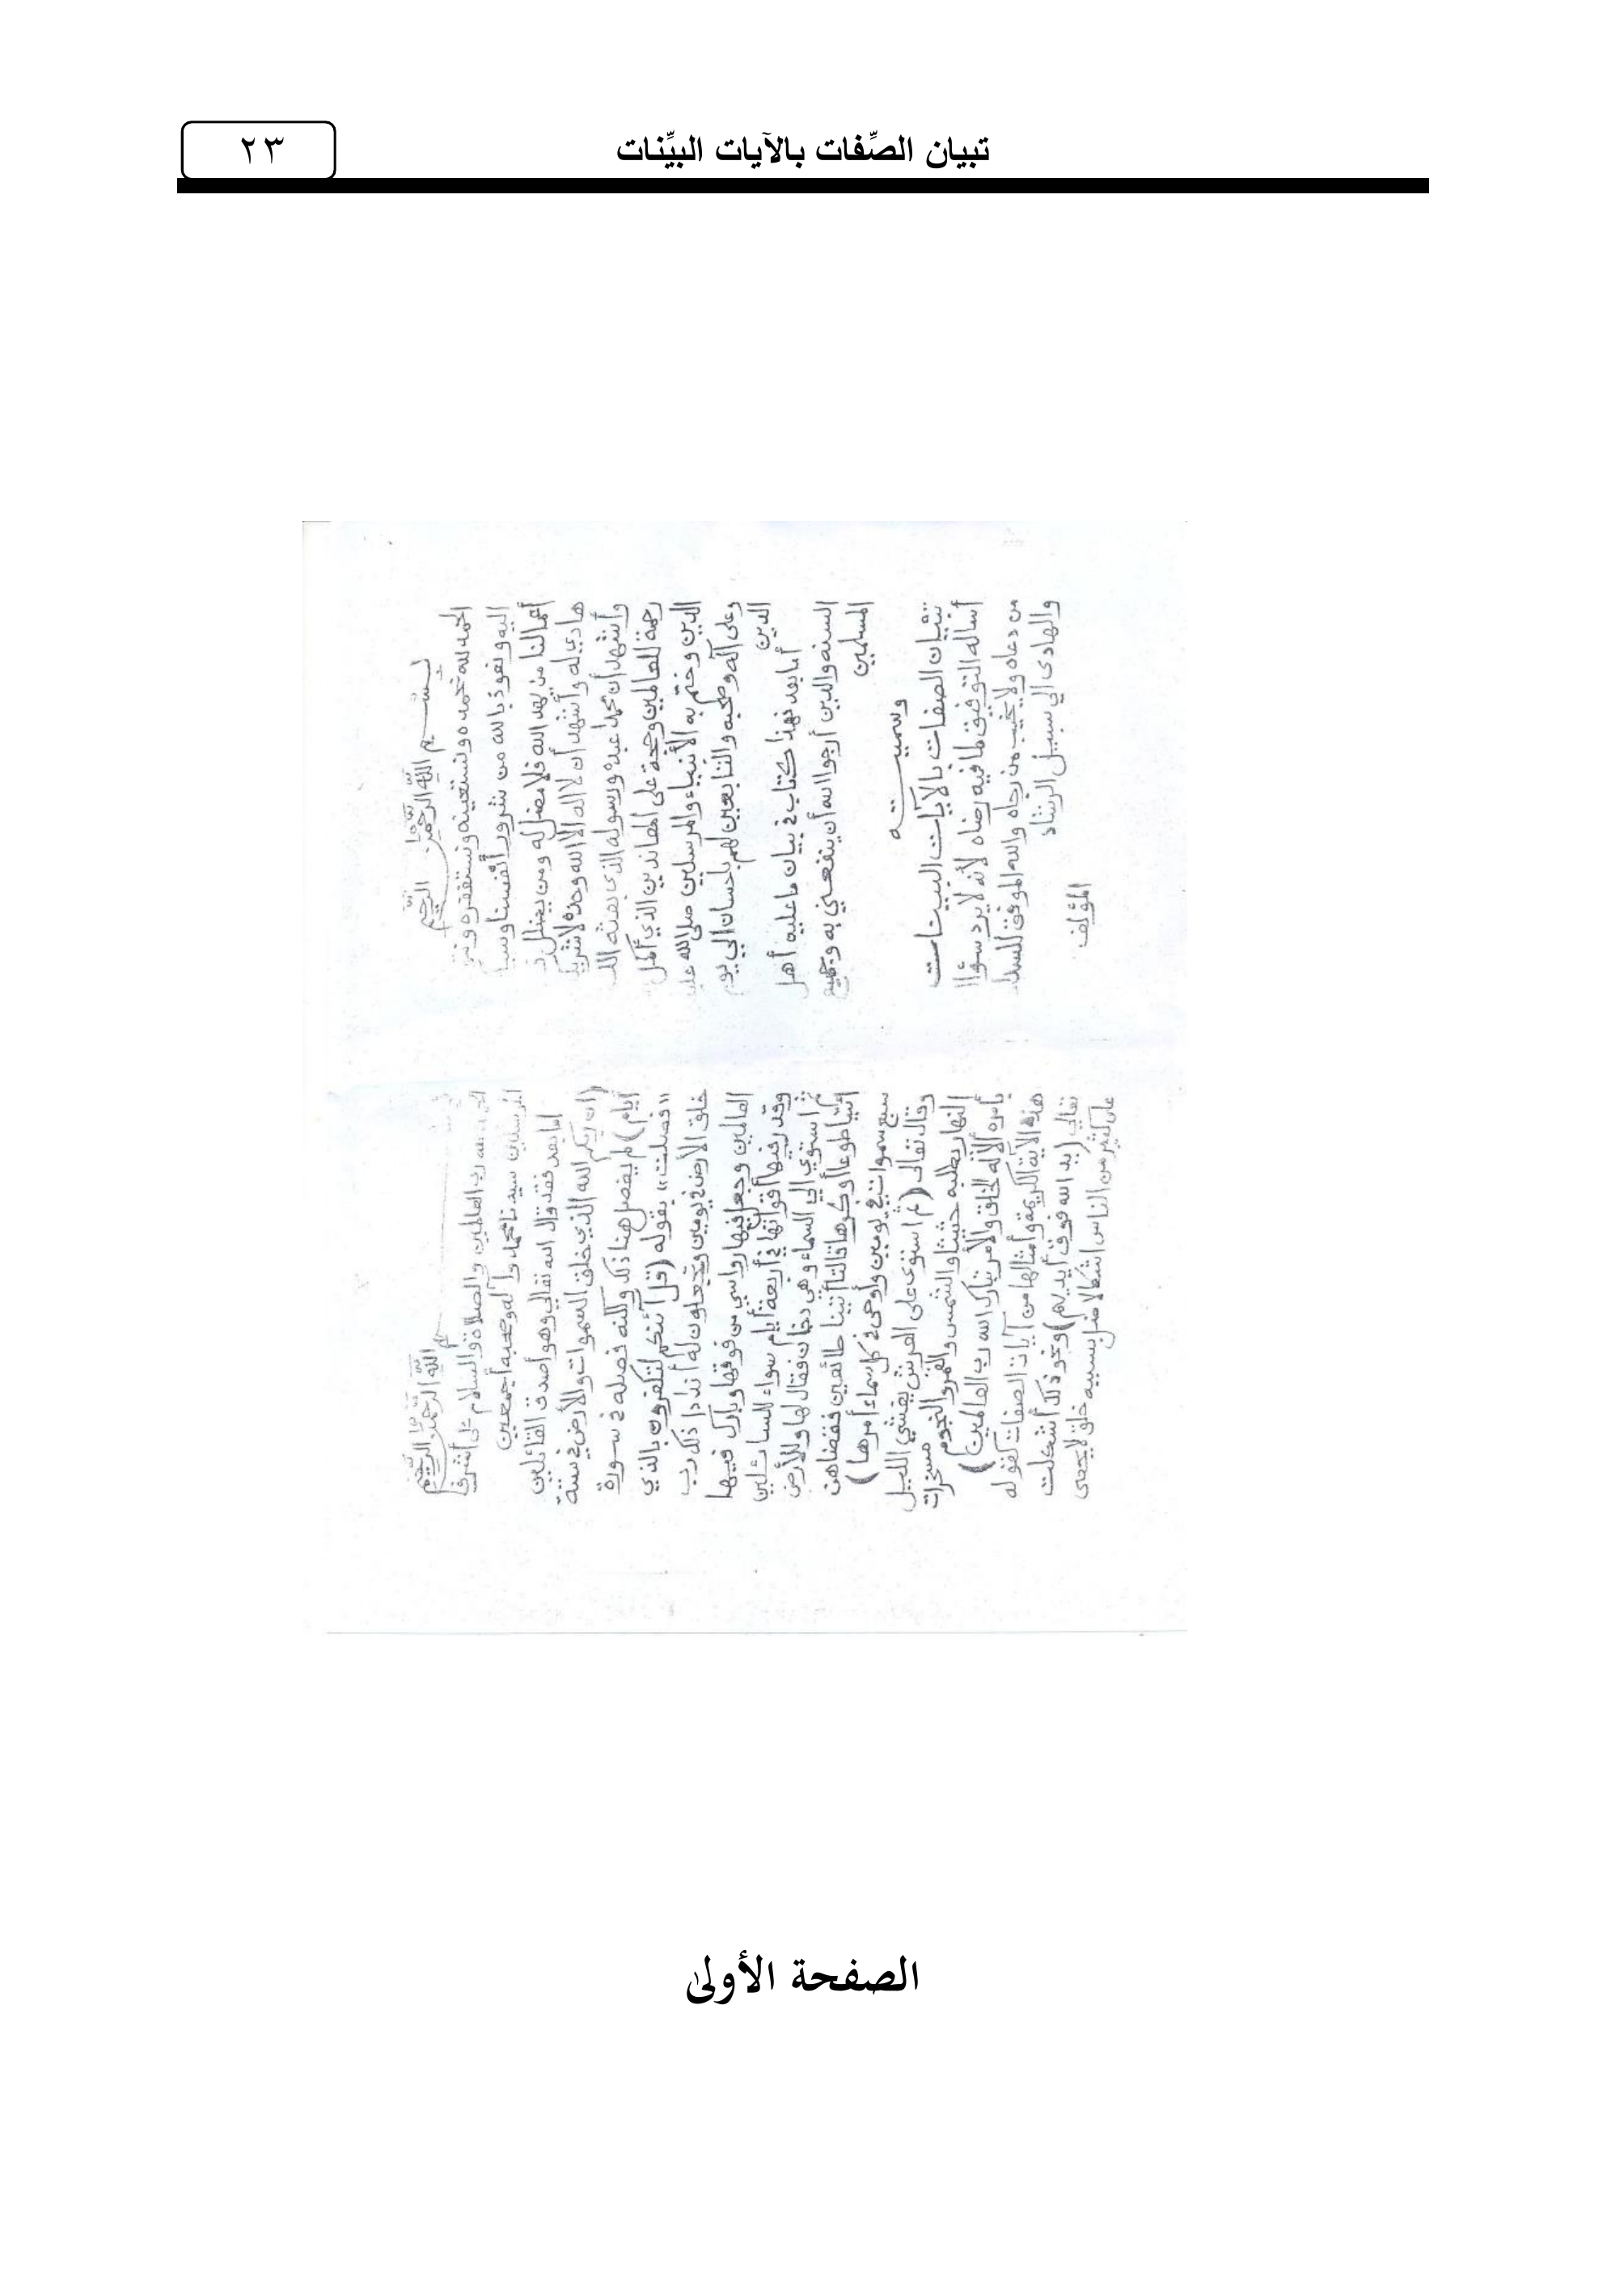 تبيان الصِّفات بالآيات البيِّنات
٢٣
بسم الله الرحمن الرحيم
الحمد لله نحمده ونستعينه ونستغفره ونتو
اليه ونعوذ بالله من شرور أنفسنا وسيا
أعمالنا من يهد الله فلا مضل له ومن يضلل
هادي له وأشهد أن لا اله الا الله وحده لا شريك
وأشهد أن محمدا عبده ورسوله الذي بعثه الله
رحمة للعالمين وحجة على المعاندين الذي أكمل
الدين وختم به الأنبياء والمرسلين صلى الله عليه
وعلى آله وصحبه والتابعين لهم باحسان الى يوم
الدين
أما بعد فهذا كتاب في بيان ما عليه أهل
السنه والدين أرجوا الله أن ينفعني به وجميع
المسلمين
وسميته
تبيان الصفات بالآيات البينات
أسأله التوفيق لما فيه رضاه لأنه لا يرد سؤال
من دعاه ولا يخيب من رجاه والله الموفق للسداد
والهادي الي سبيل الرشاد
المؤلف
بسم الله الرحمن الرحيم
الحمد لله رب العالمين والصلاة والسلام على أشرف
المرسلين سيدنا محمد وآله وصحبه أجمعين
أما بعد فقد قال الله تعالى وهو أصدق القائلين
(ان ربكم الله الذي خلق السموات والأرض في ستة
أيام) لم يفصل هنا ذلك ولكنه فصله في سورة
«فصلت» بقوله (قل أئنكم لتكفرون بالذي
خلق الأرض في يومين وتجعلون له أندادا ذلك رب
العالمين وجعل فيها رواسي من فوقها وبارك فيها
وقدر فيها أقواتها في أربعة أيام سواء للسائلين
ثم استوي الي السماء وهي دخان فقال لها وللأرض
ائتيا طوعا أو كرها قالتا أتينا طائعين فقضاهن
سبع سموات في يومين وأوحى في كل سماء أمرها)
وقال تعالى (ثم استوى على العرش يغشي الليل
النهار يطلبه حثيثا والشمس والقمر والنجوم مسخرات
بأمره ألا له الخلق والأمر تبارك الله رب العالمين)
هذه الآية الكريمة وأمثالها من آيات الصفات كقوله
تعالي (يد الله فوق أيديهم) ونحو ذلك أشكلت
على كثير من الناس اشكالا ضل بسببه خلق لا يحصى
الصفحة الأولى